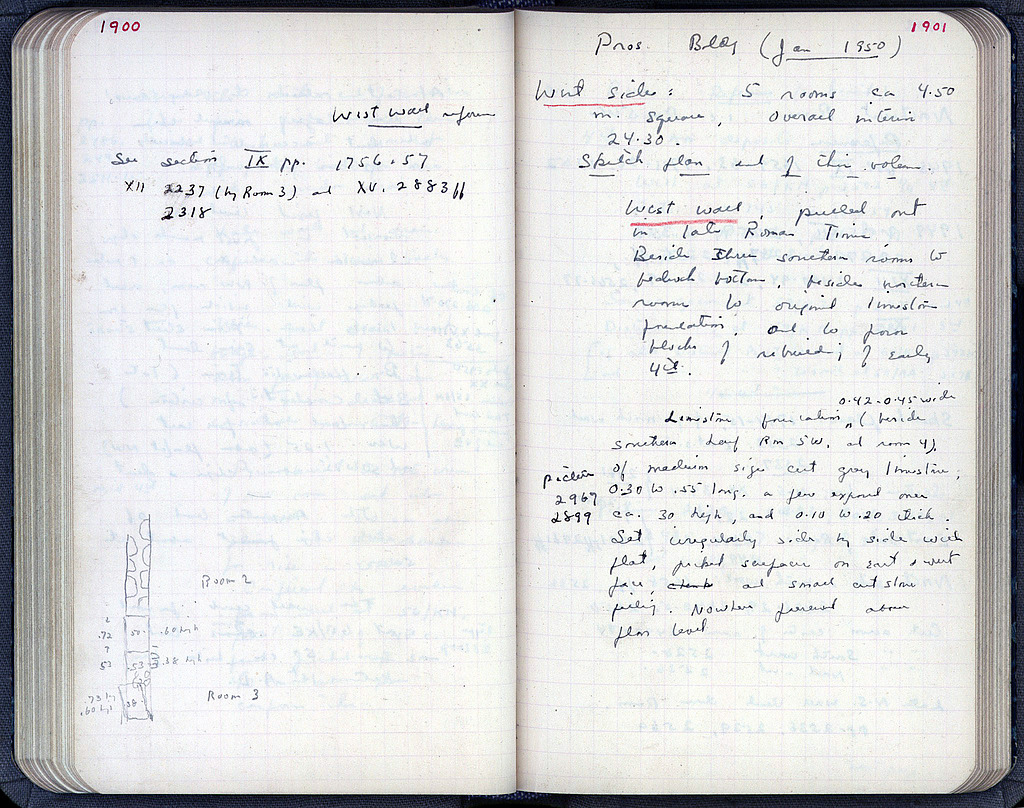 1900
West wall
See section IX pp. 1756-57
XII 2237 (by Room 3) and XV. 2883ff
2318
Room 2
.72
50
.60 high
53
.53
.38 high
Room 3
.73 h
.60 h
38
1901
Pros. Bldg (Jan 1950)
West side: 5 rooms ca 4.50
m. square, Overall interior
24.30.
Sketch plan end of this volume.
West wall, pulled out
in late Roman Times
Beside three southern rooms to
bedrock bottom, besides northern
rooms to original limestone
foundation and to poros
blocks of rebuild; of early
4th.
0.42-0.45 wide
Limestone foundation (beside
southern half Rm SW. and room 4)
of medium size cut gray limestone,
0.30 to .55 long. a few exposed ones
Picture
2967
2899
ca. 30 high, and 0.10 to .20 thick.
Set irregularly side by side with
flat, picked surfaces on east & west
face, and small cut stone
filling. Nowhere preserved above
floor level